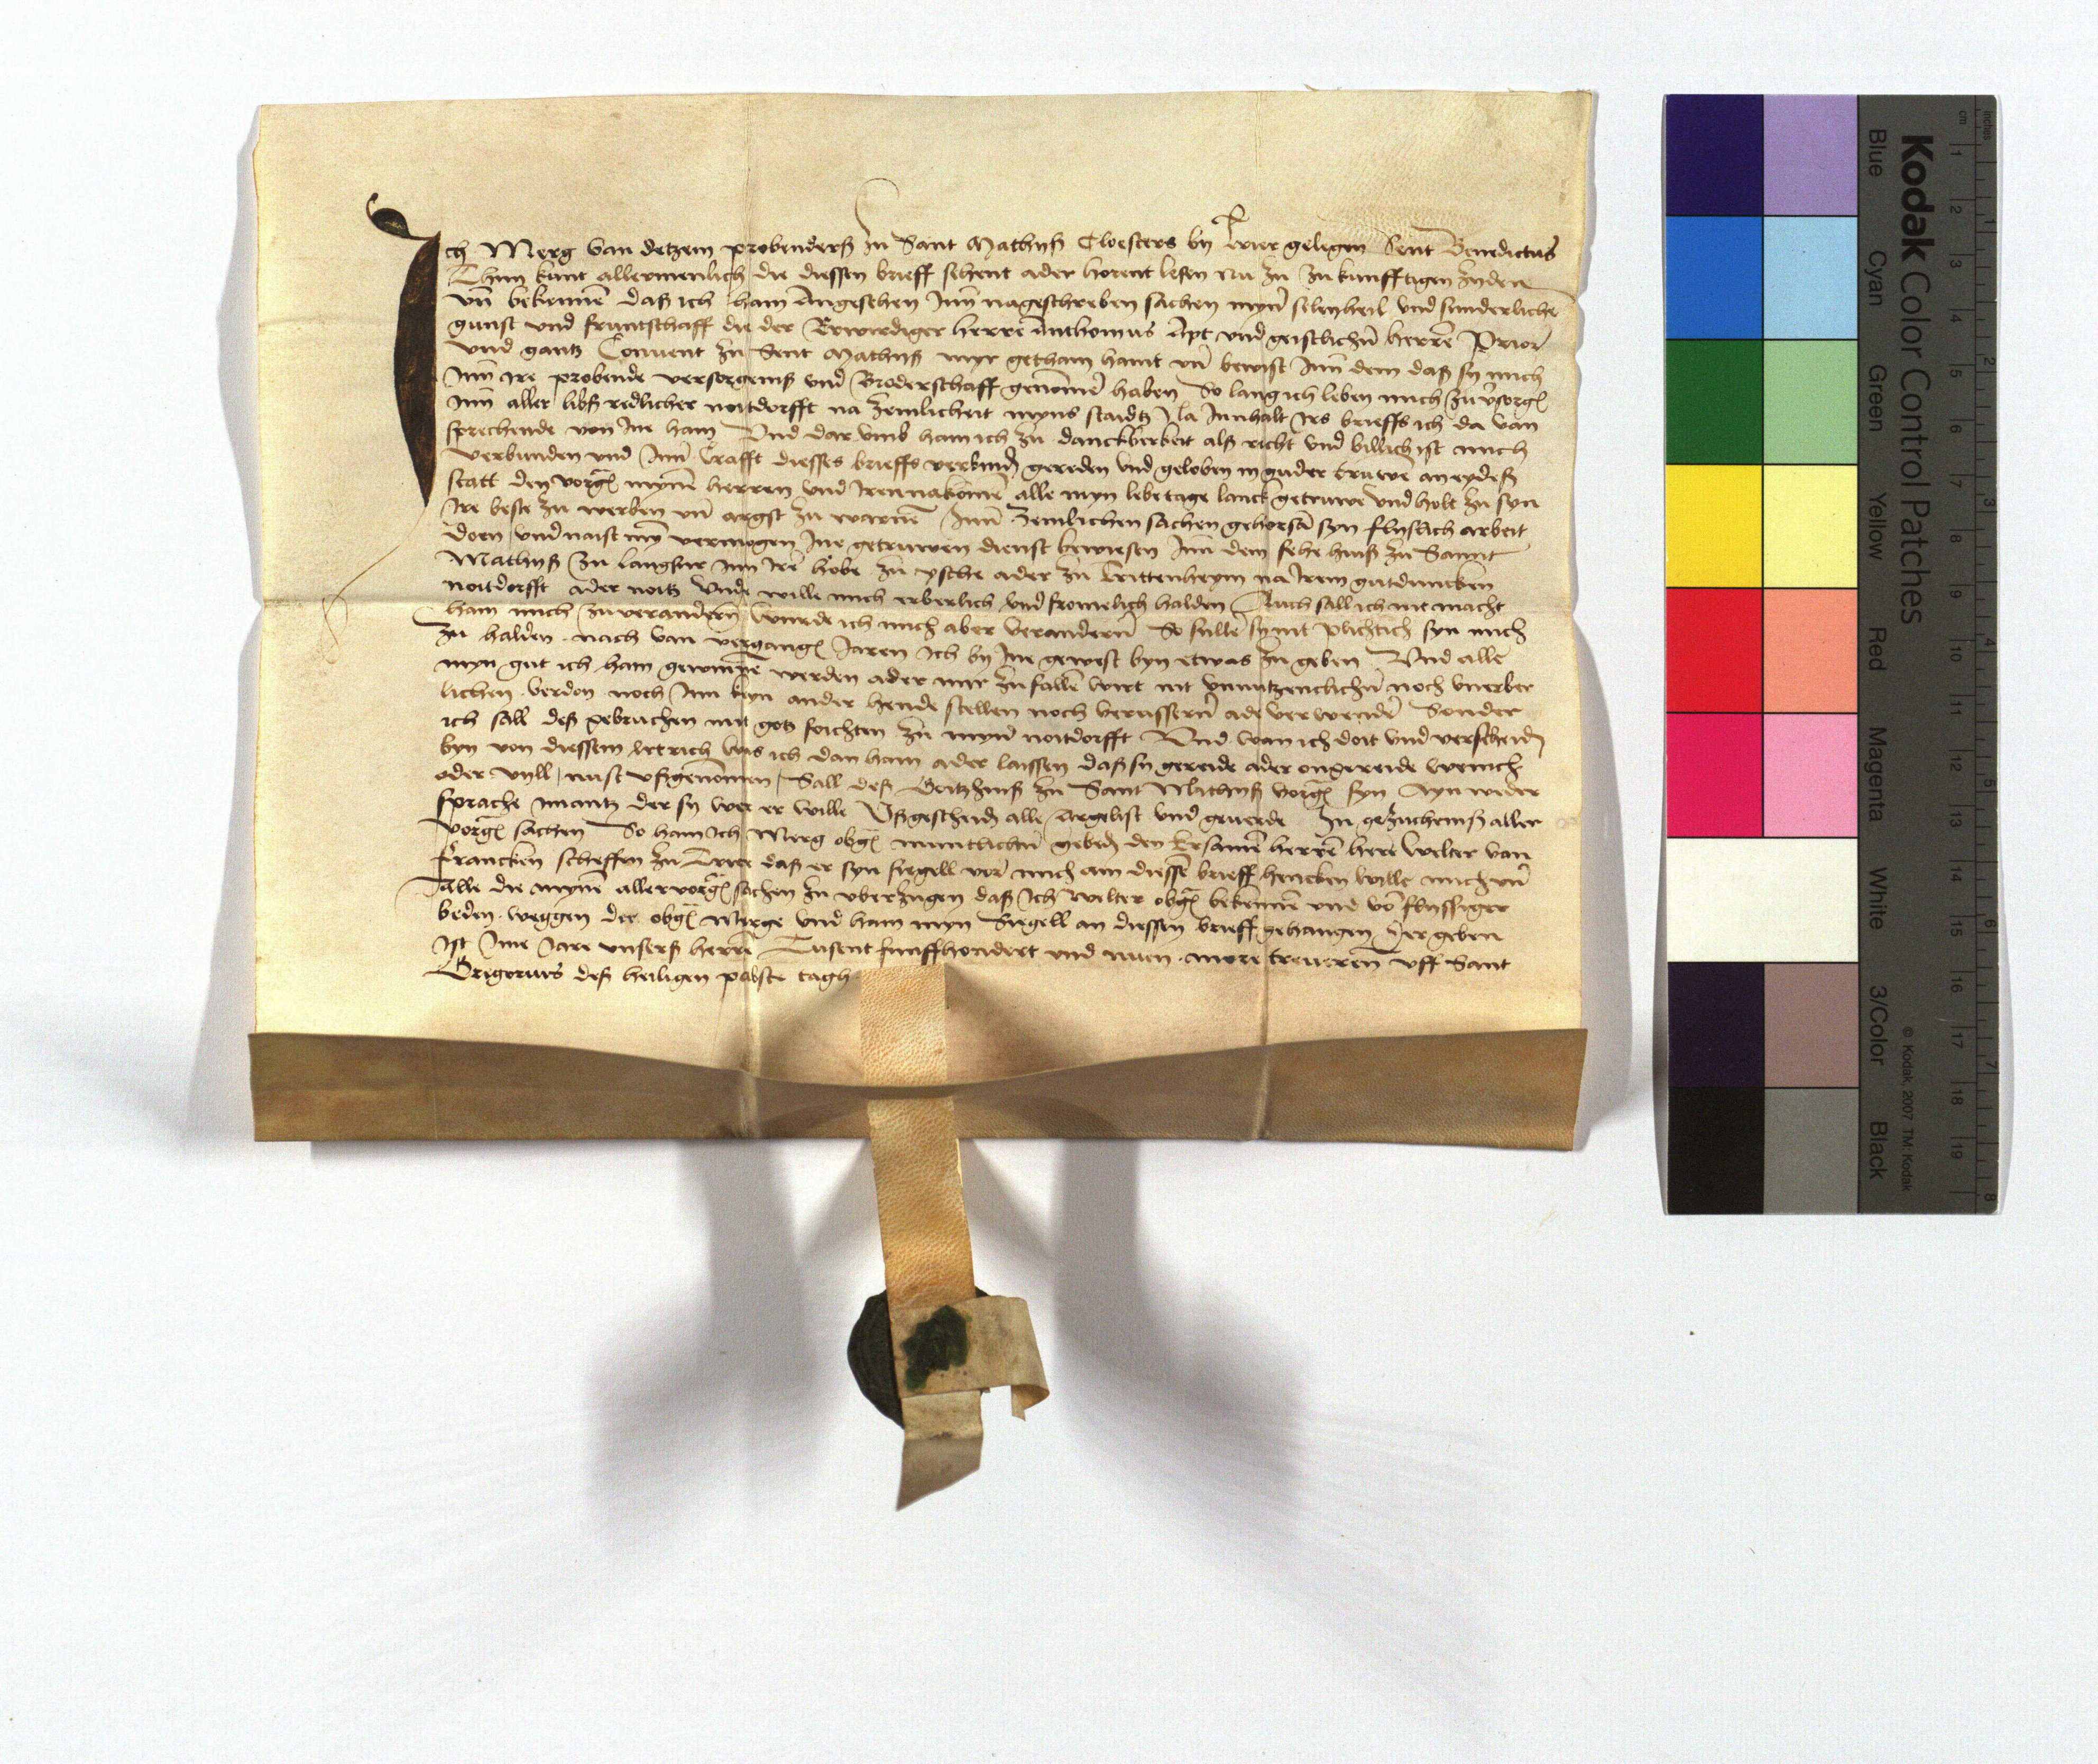 Ich Merg van detzem probenderß in Sant Mathyß Cloesters by Trier gelegen Sent Benedictus
Thun kunt allermenlich die diessen brieff sehent ader horent lesen nu zu zu kunfftigen zyden
vn̄ bekennē daß ich ham Angesehen Inn nageschreben sachen myn̄ selenheil vnd sunderliche
gunst vnd fruntschaff die der Erwirdiger herre Anthonius Apt vnd geistlichn̄ herrē Prior
vnd gantz Convent zu Sent Mathyß myr gethain haint vn̄ bewist Inn dem daß sy mich
Inn Ire probende versorgeniß vnd Broderschaff genomē haben So lang ich leben mich zu v̄sorgē
Inn aller libß redlicher noitdorfft na zemlicheit myns staidtz Na Innhalt Irs brieffs ich da van
sprechende von Ine ham Vnd dar vmb ham ich zu danckberkeit alß richt vnd billich ist mich
verbunden vnd Inn crafft diesses brieffs verbindē gereden vnd geloben in guder truwē an eydeß
statt den vorgē mynē herren vnd Iren nakomē alle myn lebetage lanck getruwe vnd holt zu syn
Ire beste zu werben vn̄ argst zu warnē Inn zemlichen sachen gehorsā syn flyslich arbeit
doen vnd naist mȳ vermogen Ine getruwen dienst bewiesen Inn dem fehe huiß zu Sannt
Mathyß zu langsur Inn Irē hobe zu ysche ader zu Crittenheym na Irem gutduncken
noitdorfft ader noitz Vnde wille mich erberlich vnd fromelich halden Auch sall ich nit macht
ham mich zu verandern̄ wurde ich mich aber verandern̄ So sulle sy nit plichtich syn mich
zu halden nach van vergangē Jaren Ich by Ine gewest byn etwas zu geben Vnd alle
myn gut ich ham gewinne werden ader mir zu fallē wirt nit vnnutzenclichn̄ noch vnerber
lichen verdon noch Inn keyn ander hende stellen noch verussern̄ ader verwendē Sonder
ich sall deß gebruchen mit gotz forchten zu myn̄ noitdorfft Vnd wan ich doit vnd verscheidē
byn von diessem ertrich was ich dan ham ader laissen daß sy gereide ader ongereide wenich
oder vyll nust vßgenomen Sall deß Gotzhuß zu Sant Mathyß vorgē syn Ayn weder
sprache Imantz der sy wer er wille Vßgescheidē alle Argelist vnd geuerde Zu gezucheniß aller
vorgē sachen So ham ich Merg obgē muntlichn̄ gebedē den Ersamē herrē herr Welter van
Francken scheffen zu Trier daß er syn siegell vor mich am diessē brieff hencken wille mich vn̄
alle die mynē aller vorgē sachen zu vberzugen daß Ich welter obgē bekennē vnd vō flyssiger
beden weggen der obgē Merge vnd ham myn Siegell an diessen brieff gehangen Der geben
Ist Ime Jare vnserß herrē Tusent funffhondert vnd nuen more treverēn vff Sant
Gregorius deß heiligen pabste tagh
Kodak Color Control Patches
© Kodak, 2007 TM: Kodak
Blue Cyan Green Yellow Red Magenta White 3/Color Black
cm 1 2 3 4 5 6 7 8 9 10 11 12 13 14 15 16 17 18 19
Inches 1 2 3 4 5 6 7 8